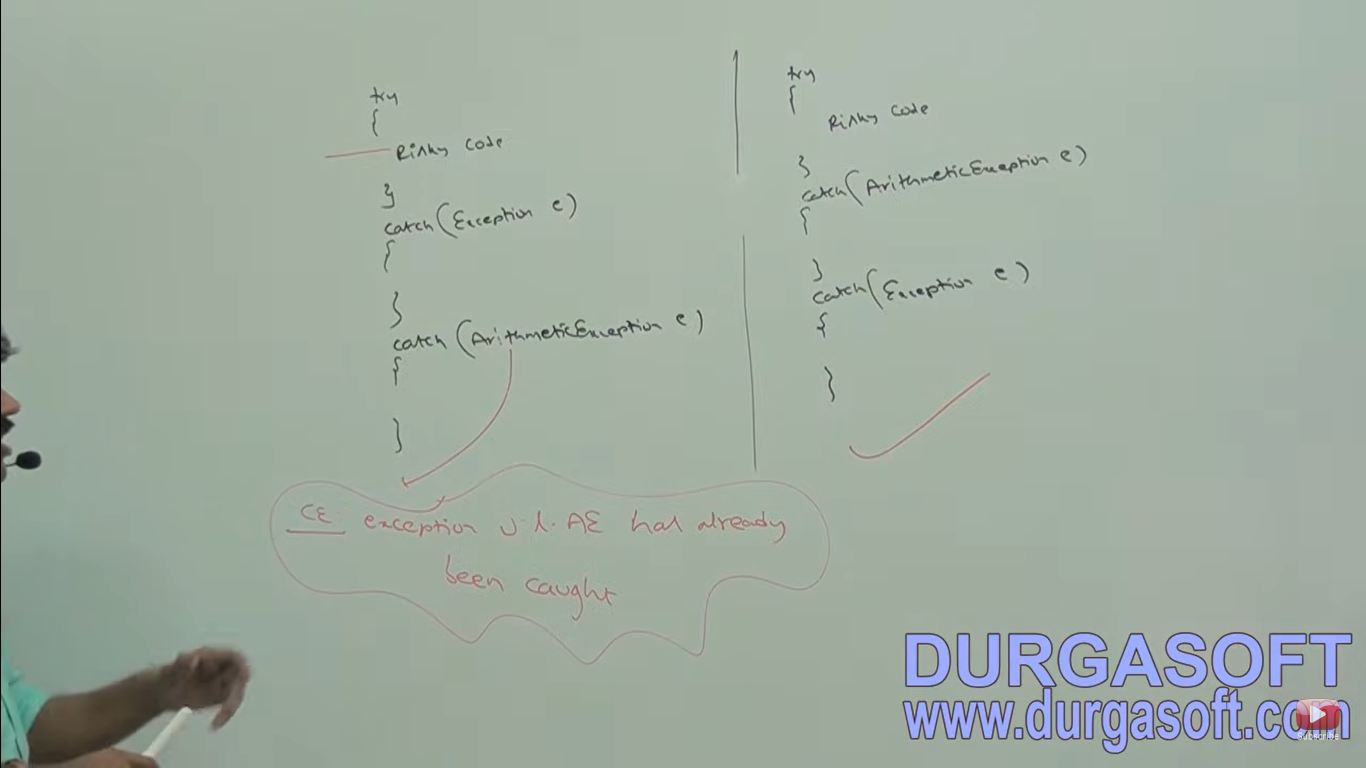 try
{
Risky code
}
catch(Exception e)
{
}
catch(ArithmeticException e)
{
}
CE exception j.l.AE has already
been caught
try
{
Risky code
}
catch(ArithmeticException e)
{
}
catch(Exception e)
{
}
DURGASOFT
www.durgasoft.com
Subscribe